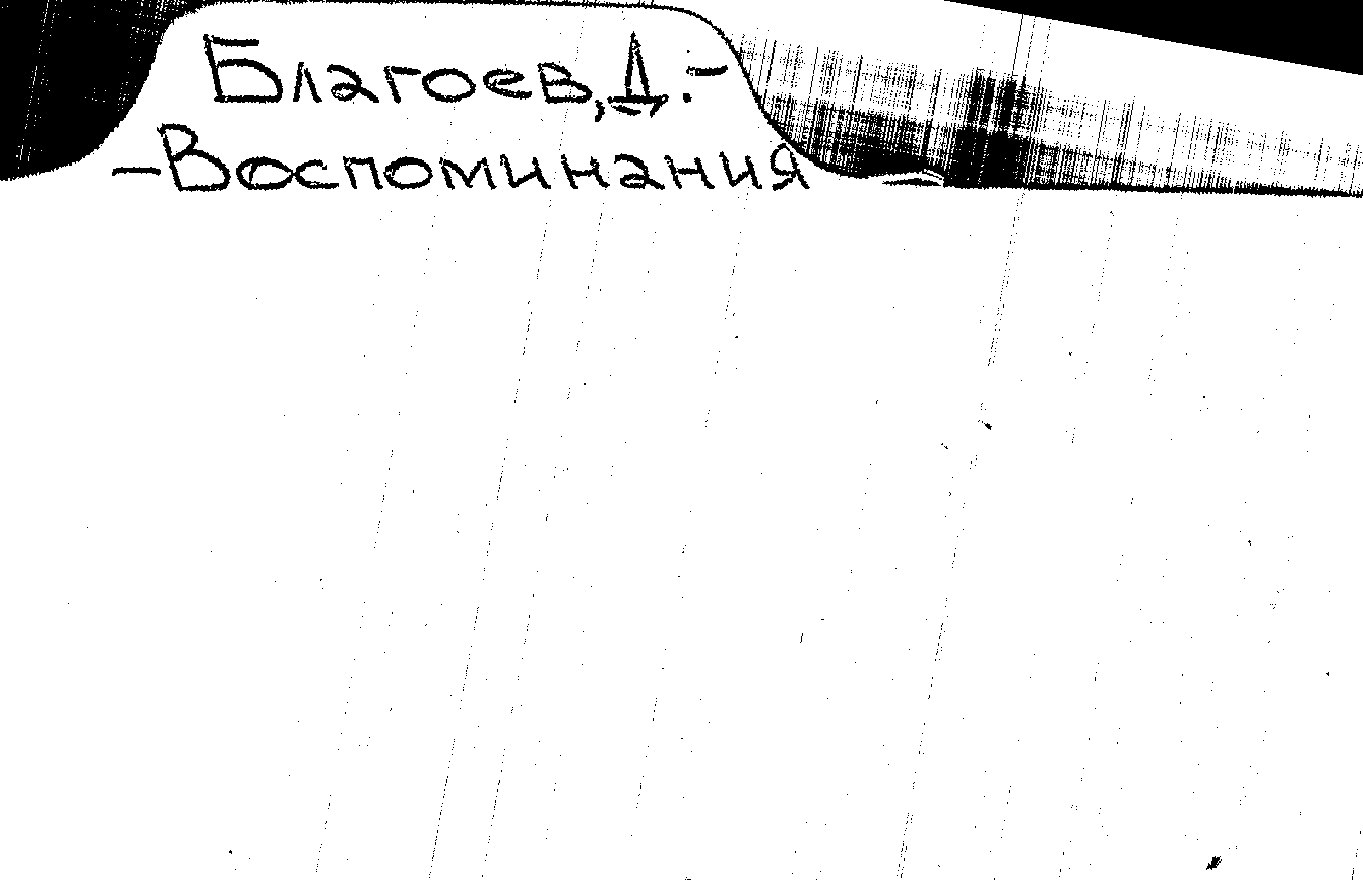 Благоев, Д.-
-Воспоминания